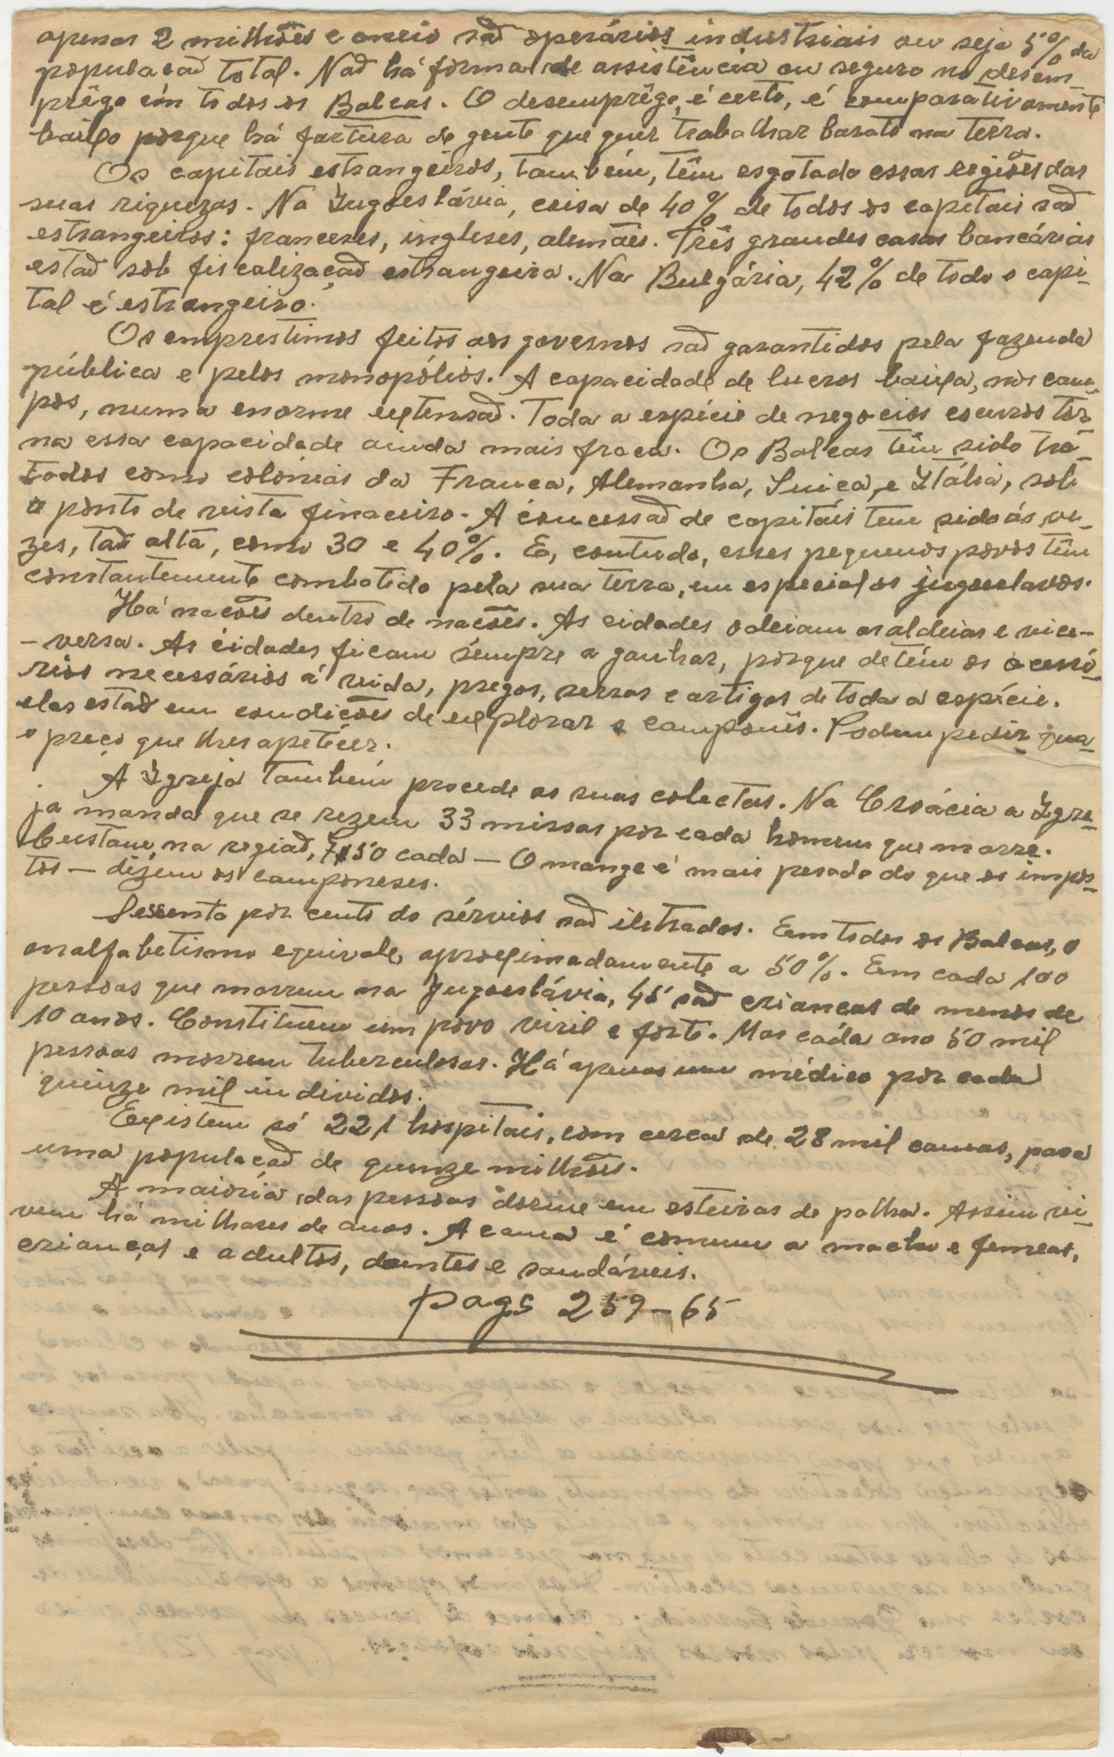 apenas 2 milhões e meio saõ operários industriais ou seja 5% da
populaçaõ total. Naõ há forma de assistência ou seguro no desem-
prêgo em todos os Balcas. O desemprêgo, é certo, é comparativamente
baixo porque há fartura de gente que quer trabalhar barato na terra.
Os capitais estrangeiros, também, têm esgotado essas regiões das
suas riquezas. Na Jugoeslávia, coisa de 40% de todos os capitais saõ
estrangeiros: franceses, ingleses, alemães. Três grandes casas bancárias
estaõ sob fiscalizaçaõ estrangeira. Na Bulgária, 42% de todo o capi-
tal é estrangeiro.
Os emprestimos feitos aos governos saõ garantidos pela fazenda
pública e pelos monopólios. A capacidade de lucros baixa, nos cam-
pos, numa enorme extensaõ. Toda a espécie de negocios escuros tor-
na essa capacidade ainda mais fraca. Os Balcas têm sido tra-
tados como colonias da França, Alemanha, Suiça, e Itália, sob
o ponto de vista finaceiro. A concessaõ de capitais tem sido ás ve-
zes, taõ alta, como 30 e 40%. E, contudo, esses pequenos povos têm
constantemente combatido pela sua terra, em especial os jugoeslavos.
Há nações dentro de nações. As cidades odeiam as aldeias e vice-
-versa. As cidades ficam sempre a ganhar, porque detêm os acessó-
rios necessários á vida, pregos, serras e artigos de toda a espécie.
elas estaõ em condições de explorar o camponês. Podem pedir qua-
o preço que lhes apetécer.
A Igreja também procede as suas colectas. Na Croácia a Igre-
ja manda que se rezem 33 missas por cada homem que morre.
Custam, na regiaõ, 7$50 cada — O monge é mais pesado do que os impos-
tos — dizem os camponeses.
Sessenta por cento do sérvios saõ iletrados. Em todos os Balcas, o
analfabetismo equivale, aproximadamente a 50%. Em cada 100
pessoas que morrem na Jugoeslávia, 45 saõ crianças de menos de
10 anos. Constituem um povo viril e forte. Mas cada ano 50 mil
pessoas morrem tuberculosas. Há apenas um médico por cada
quinze mil individos.
Existem só 221 hospitais, com cerca de 28 mil camas, para
uma populaçaõ de quinze milhões.
A maioria das pessoas dorme em esteiras de palha. Assim vi-
vem há milhares de anos. A cama é comum a machos e femeas,
crianças e adultos, doentes e saudáveis.
pags 259-65